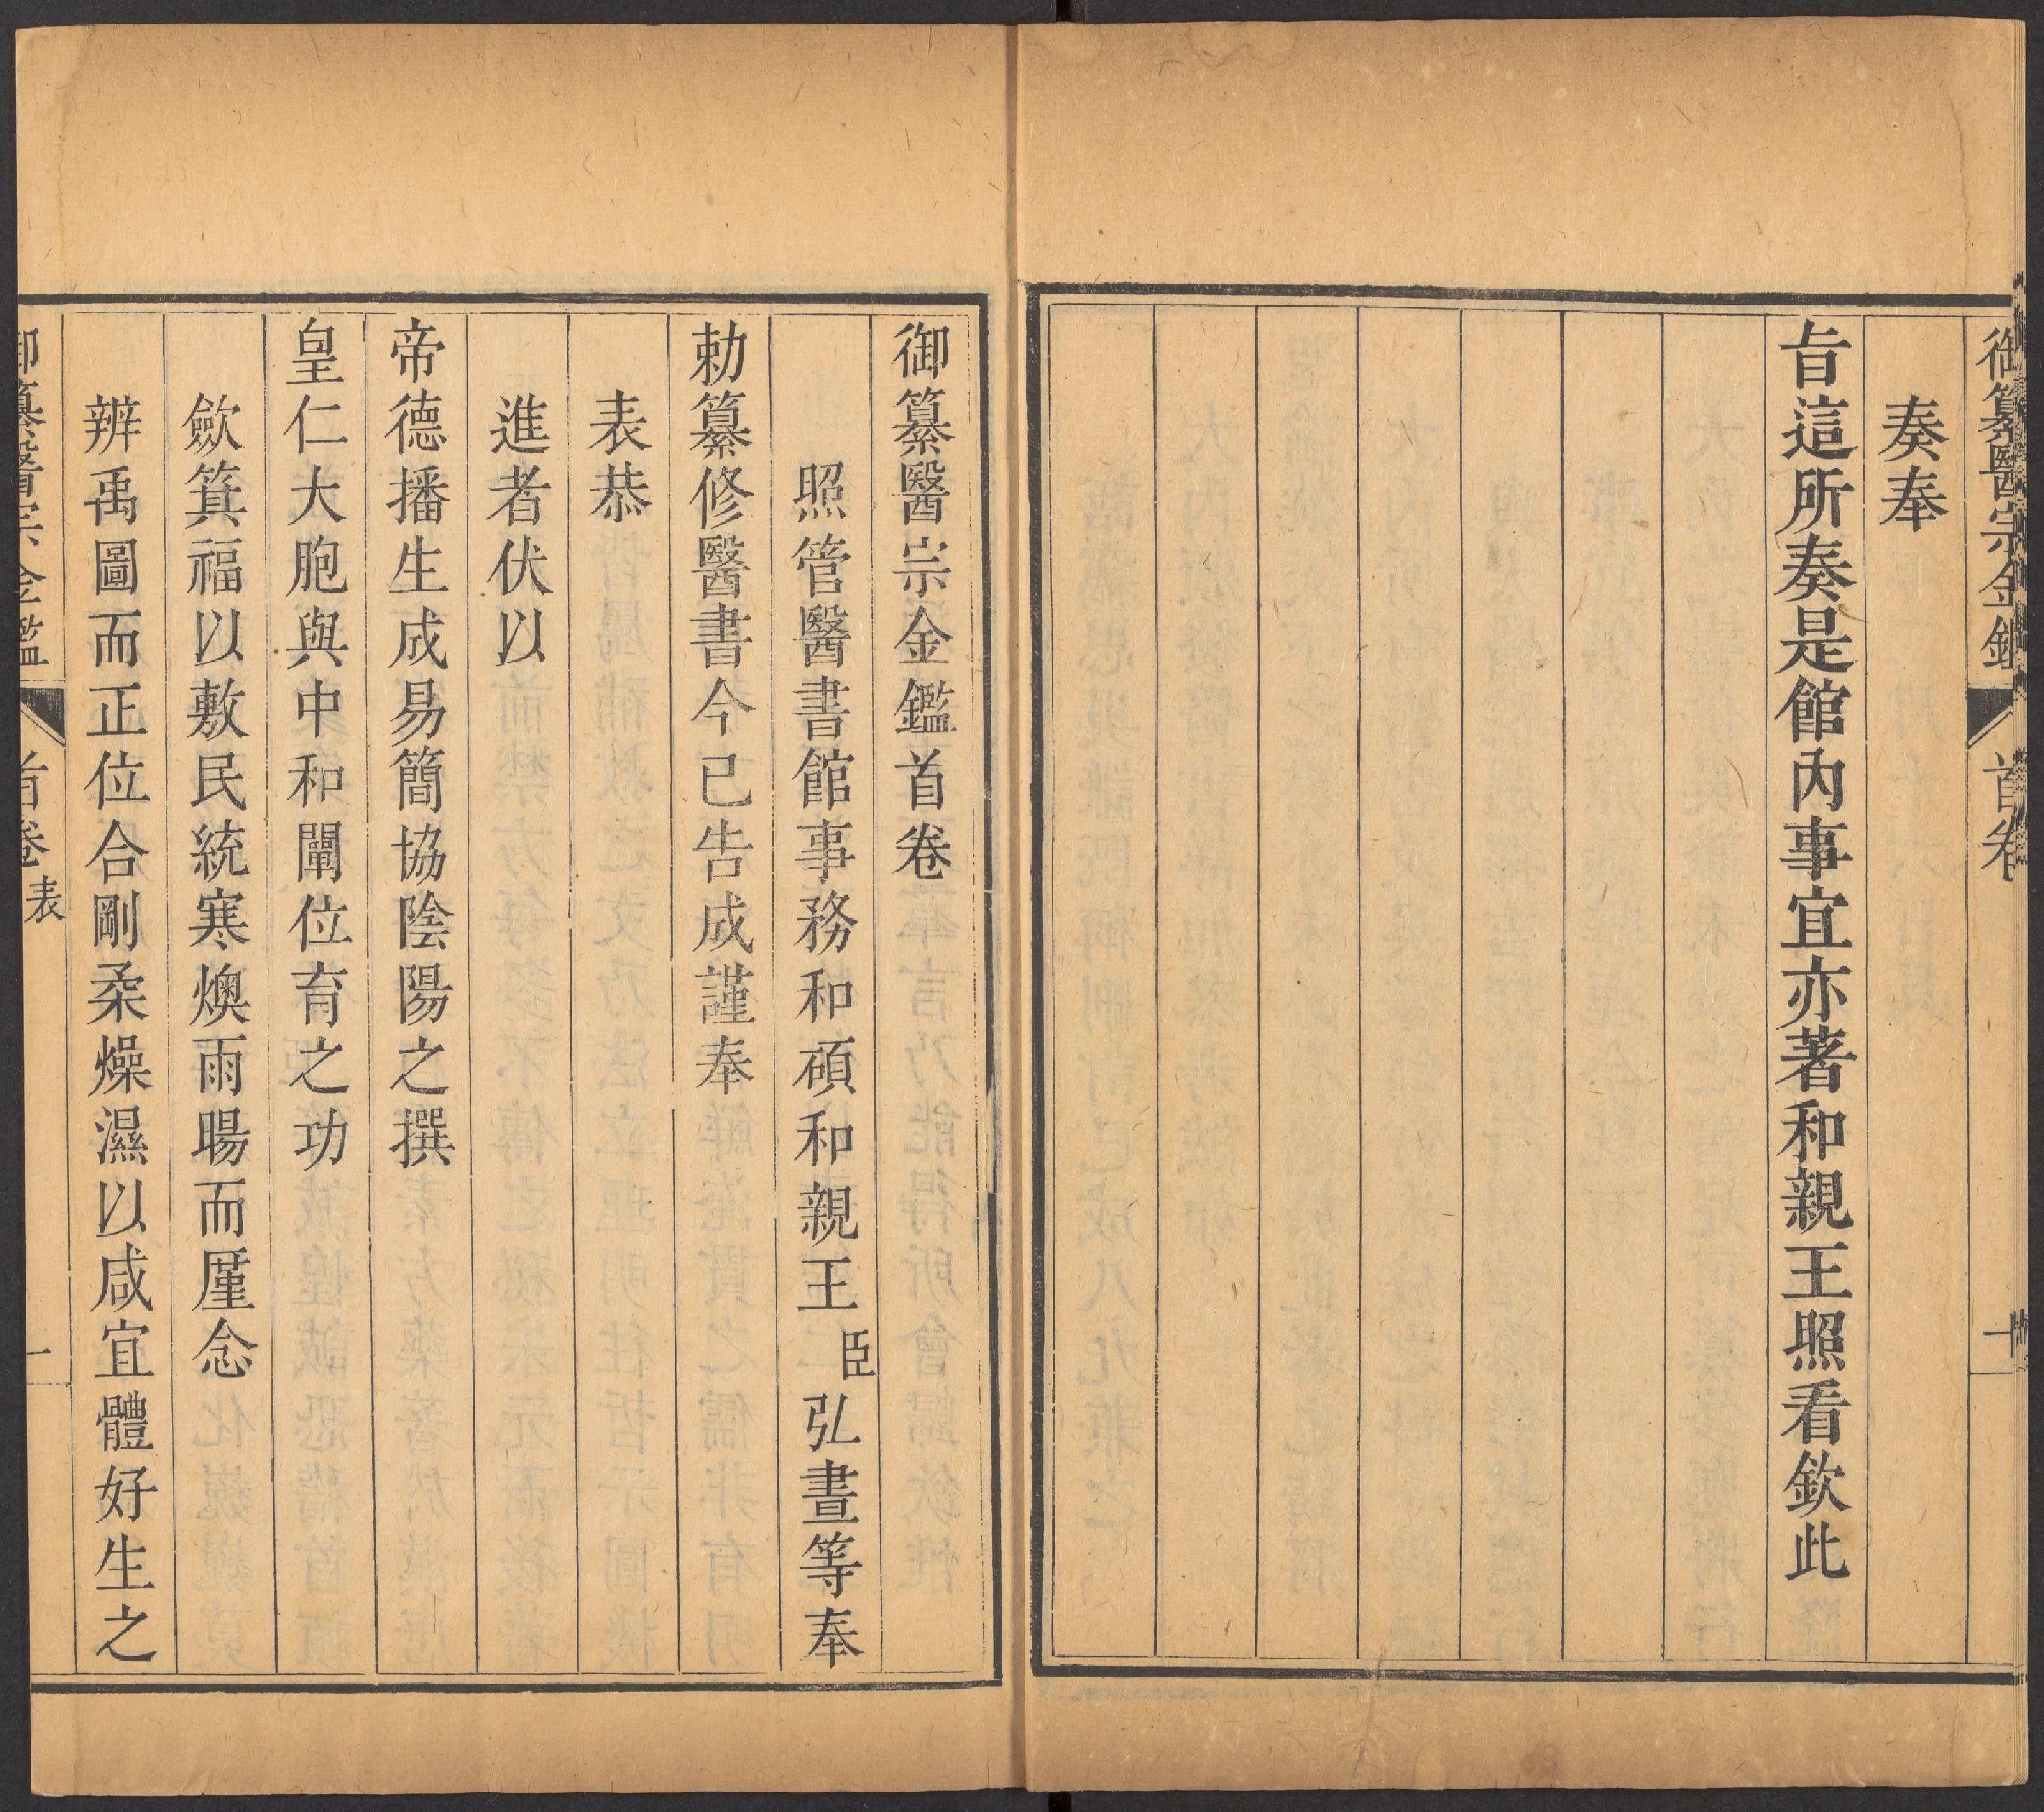 御纂醫宗金鑑 首卷 十
奏奉
旨這所奏是館內事宜亦著和親王照看欽此
御纂醫宗金鑑首卷
照管醫書館事務和碩和親王臣弘晝等奉
勅纂修醫書今已告成謹奉
表恭
進者伏以
帝德播生成易簡協陰陽之撰
皇仁大胞與中和闡位育之功
歛箕福以敷民統寒燠雨暘而廑念
辨禹圖而正位合剛柔燥濕以咸宜體好生之
御纂醫宗金鑑 首卷 表 一